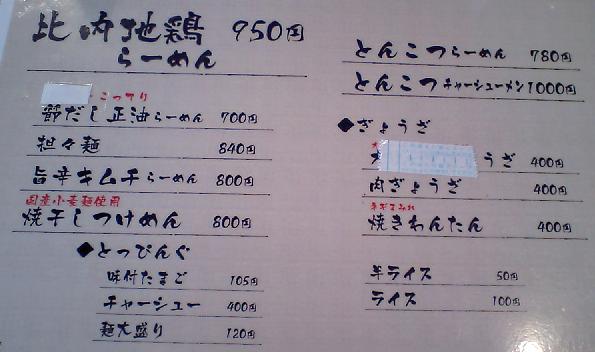 比内地鶏 950円
らーめん
こってり
節だし正油らーめん 700円
担々麺 840円
旨辛キムチらーめん 800円
国産小麦麺使用
焼干しつけめん 800円
◆とっぴんぐ
味付たまご 105円
チャーシュー 400円
麺大盛り 120円
とんこつらーめん 780円
とんこつチャーシューメン 1000円
◆ぎょうざ
うざ 400円
肉ぎょうざ 400円
ねぎまみれ
焼きわんたん 400円
半ライス 50円
ライス 100円